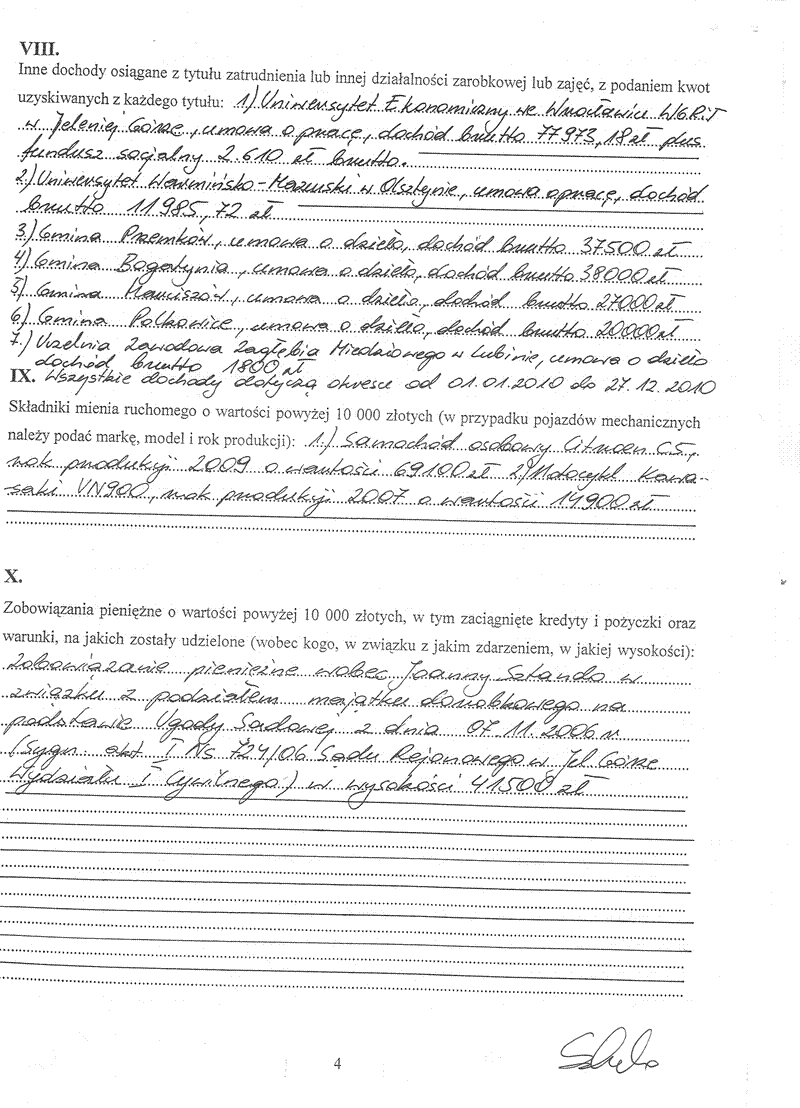 VIII.
Inne dochody osiągane z tytułu zatrudnienia lub innej działalności zarobkowej lub zajęć, z podaniem kwot
uzyskiwanych z każdego tytułu: 1.) Uniwersytet Ekonomiczny we Wrocławiu WGRiT
w Jeleniej Górze, umowa o pracę, dochód brutto 77973,18 zł plus
fundusz socjalny 2.610 zł brutto.
2.) Uniwersytet Warmińsko-Mazurski w Olsztynie, umowa o pracę, dochód
brutto 11985,72 zł
3.) Gmina Przemków, umowa o dzieło, dochód brutto 37500 zł
4.) Gmina Bogatynia, umowa o dzieło, dochód brutto 38000 zł
5.) Gmina Marciszów, umowa o dzieło, dochód brutto 27000 zł
6.) Gmina Polkowice, umowa o dzieło, dochód brutto 20000 zł
7.) Uczelnia Zawodowa Zagłębia Miedziowego w Lubinie, umowa o dzieło
dochód brutto 1800 zł
IX. Wszystkie dochody dotyczą okresu od 01.01.2010 do 27.12.2010
Składniki mienia ruchomego o wartości powyżej 10 000 złotych (w przypadku pojazdów mechanicznych
należy podać markę, model i rok produkcji): 1.) Samochód osobowy Citroen C5,
rok produkcji 2009 o wartości 69100 zł 2.) Motocykl Kawa-
saki VN900, rok produkcji 2007 o wartości 14900 zł
X.
Zobowiązania pieniężne o wartości powyżej 10 000 złotych, w tym zaciągnięte kredyty i pożyczki oraz
warunki, na jakich zostały udzielone (wobec kogo, w związku z jakim zdarzeniem, w jakiej wysokości):
Zobowiązanie pieniężne wobec Joanny Szlando w
związku z podziałem majątku dorobkowego na
podstawie Ugody Sądowej z dnia 07.11.2006 r
(Sygn. akt I Ns 724/06 Sądu Rejonowego w Jel Górze
Wydziału I Cywilnego) w wysokości 41500 zł
4